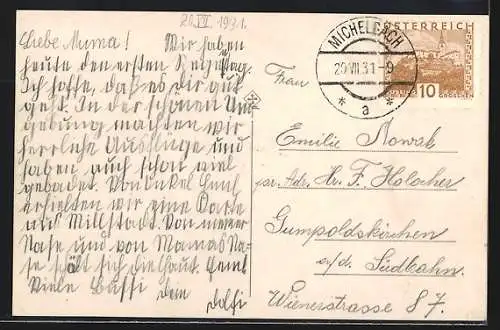 20.VII. 1931.
Liebe Muma! Wir haben
heute den ersten Regentag.
Ich hoffe, daß es dir gut
geht. In der schönen Um
gebung machten wir
herrliche Ausflüge und
haben auch schon viel
gebadet. Von Onkel Emil
erhielten wir eine Karte
aus Millstadt. Von meiner
Nase und von Mamas Na=
se schält sich die Haut.
Viele Bussi
dein Dolfi
MICHELBACH
20.VII.31-9
* a *
ÖSTERREICH
10 GROSCHEN
Frau
Emilie Nowak
per. Adr. Hr. F. Holocher
Gumpoldskirchen
a/d. Südbahn.
Wienerstrasse 87.